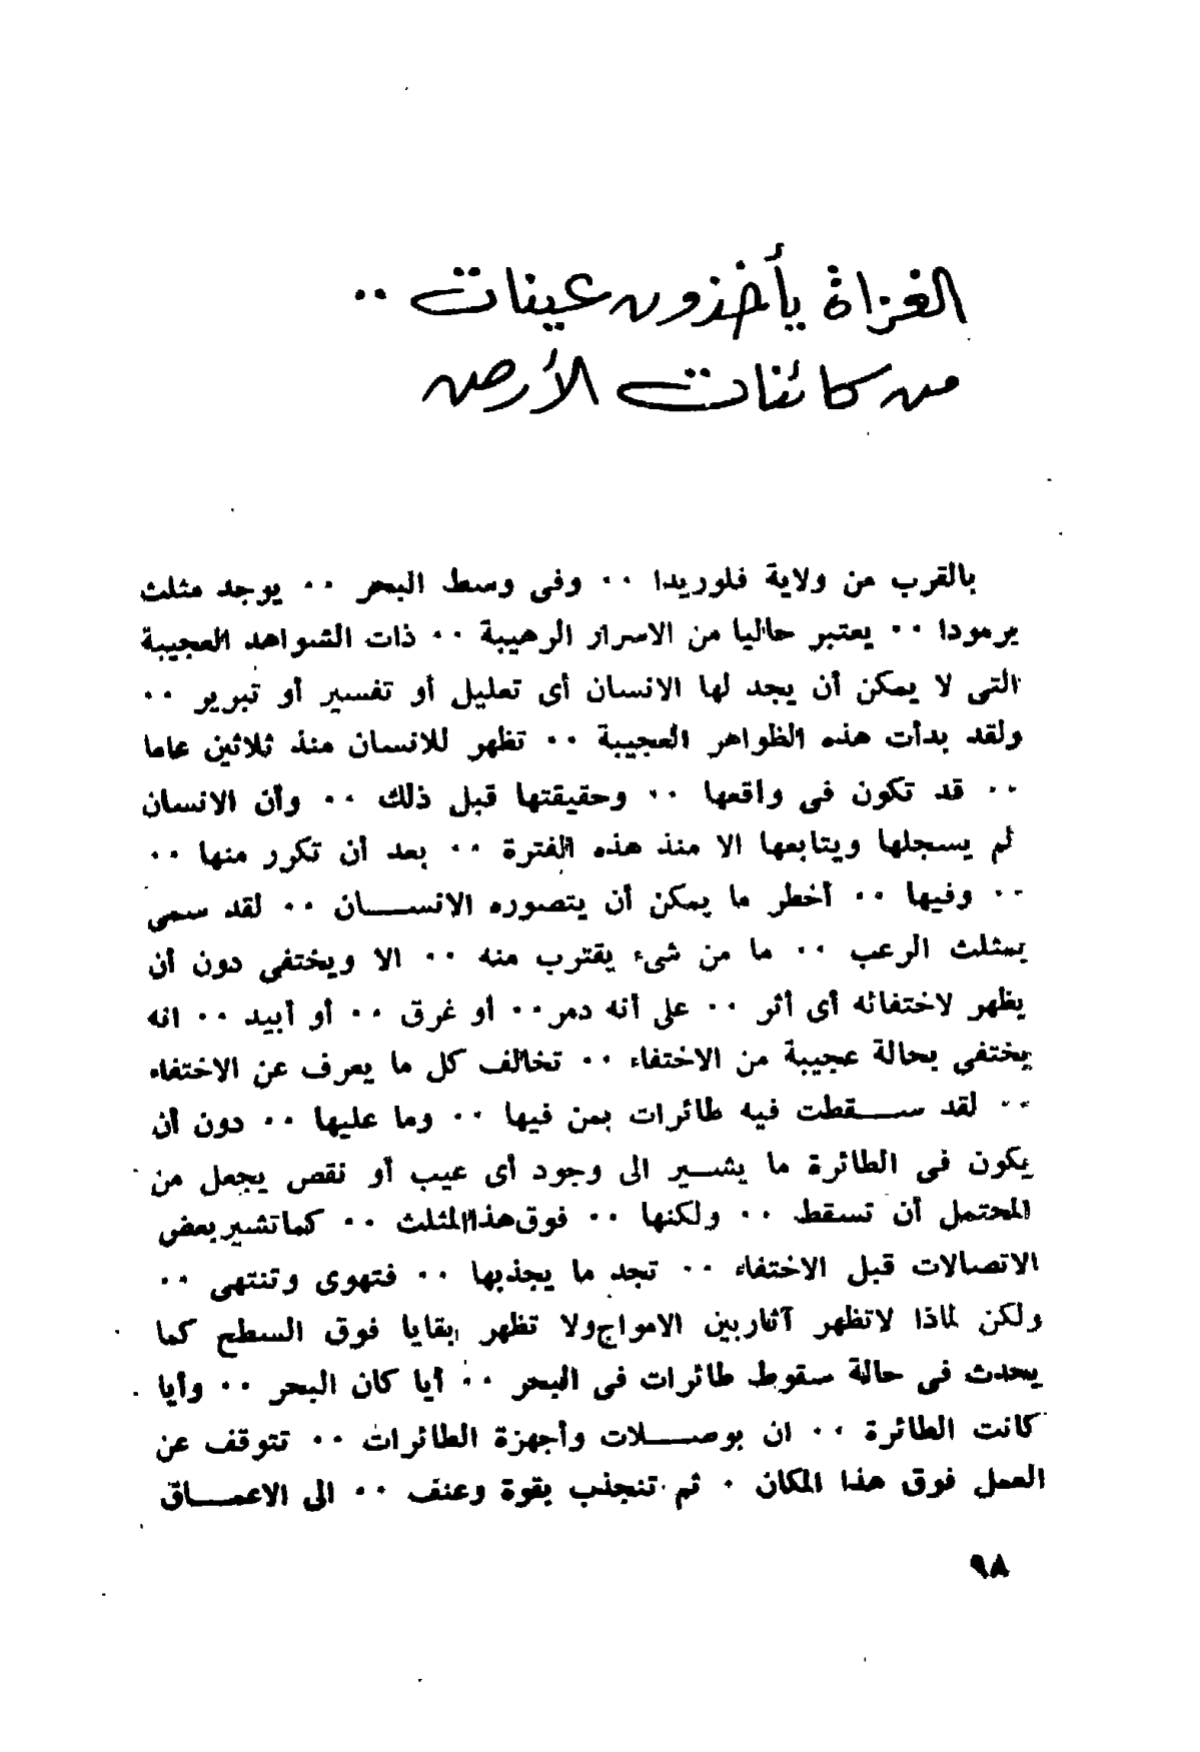 الغزاة يأخذون عينات ..
من كائنات الأرض
بالقرب من ولاية فلوريدا .. وفى وسط البحر .. يوجد مثلث
برمودا .. يعتبر حاليا من الاسرار الرهيبة .. ذات الشواهد العجيبة
التى لا يمكن أن يجد لها الانسان أى تعليل أو تفسير أو تبرير ..
ولقد بدأت هذه الظواهر العجيبة .. تظهر للانسان منذ ثلاثين عاما
.. قد تكون فى واقعها .. وحقيقتها قبل ذلك .. وأن الانسان
لم يسجلها ويتابعها الا منذ هذه الفترة .. بعد أن تكرر منها ..
.. وفيها .. أخطر ما يمكن أن يتصوره الانســـان .. لقد سمى
بمثلث الرعب .. ما من شىء يقترب منه .. الا ويختفى دون أن
يظهر لاختفائه أى أثر .. على أنه دمر .. أو غرق .. أو أبيد .. انه
يختفى بحالة عجيبة من الاختفاء .. تخالف كل ما يعرف عن الاختفاء
.. لقد ســـقطت فيه طائرات بمن فيها .. وما عليها .. دون أن
يكون فى الطائرة ما يشـــير الى وجود أى عيب أو نقص يجعل من
المحتمل أن تسقط .. ولكنها .. فوق هذا المثلث .. كما تشير بعض
الاتصالات قبل الاختفاء .. تجد ما يجذبها .. فتهوى وتنتهى ..
ولكن لماذا لاتظهر آثاربين الامواج ولا تظهر بقايا فوق السطح كما
يحدث فى حالة سقوط طائرات فى البحر .. أيا كان البحر .. وأيا
كانت الطائرة .. ان بوصـــلات وأجهزة الطائرات .. تتوقف عن
العمل فوق هذا المكان . ثم تنجذب بقوة وعنف .. الى الاعمـــاق
٩٨